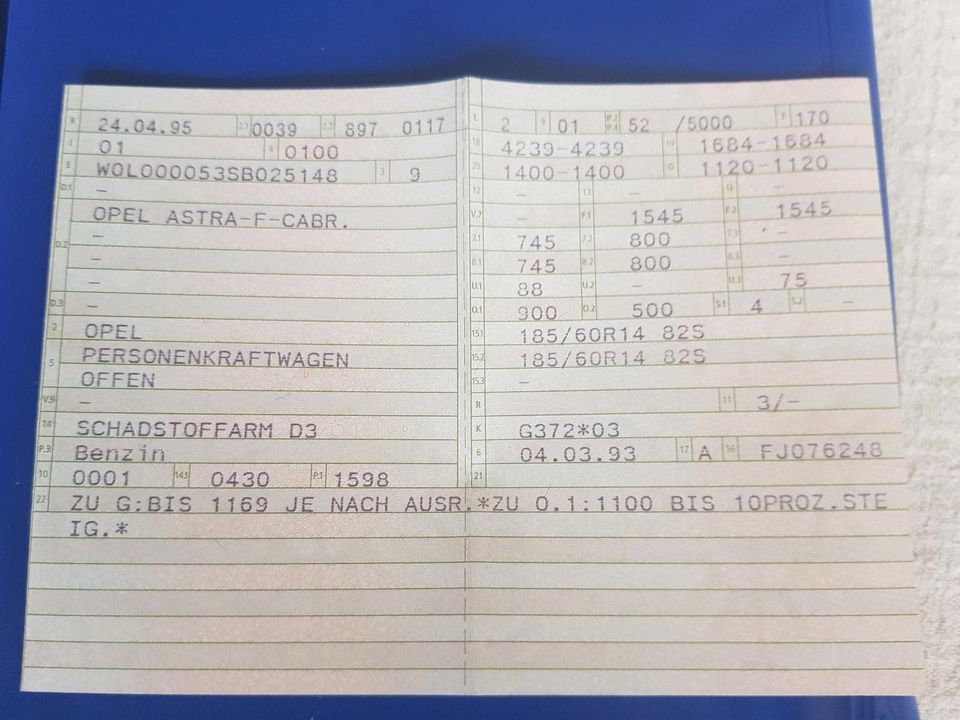 B 24.04.95 2.1 0039 2.2 897 0117 L 2 9 01 P.2 P.4 52 /5000 T 170
J 01 4 0100 18 4239-4239 19 1684-1684
E W0L000053SB025148 3 9 20 1400-1400 G 1120-1120
D.1 - 12 - 13 - Q -
OPEL ASTRA-F-CABR. V.7 - F.1 1545 F.2 1545
D.2 - 7.1 745 7.2 800 7.3 -
- 8.1 745 8.2 800 8.3 -
- U.1 88 U.2 - U.3 75
D.3 - O.1 900 O.2 500 S.1 4 S.2 -
2 OPEL 15.1 185/60R14 82S
5 PERSONENKRAFTWAGEN 15.2 185/60R14 82S
OFFEN 15.3 -
V.9 - R 11 3/-
14 SCHADSTOFFARM D3 K G372*03
P.3 Benzin 6 04.03.93 17 A 16 FJ076248
10 0001 14.1 0430 P.1 1598 21
22 ZU G:BIS 1169 JE NACH AUSR.*ZU O.1:1100 BIS 10PROZ.STE
IG.*